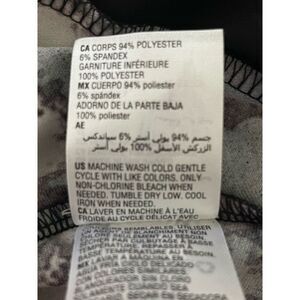 CA CORPS 94% POLYESTER
6% SPANDEX
GARNITURE INFÉRIEURE
100% POLYESTER
MX CUERPO 94% poliester
6% spándex
ADORNO DE LA PARTE BAJA
100% poliester
AE
جسم 94% بولي أستر 6% سباندكس
الزركش الأسفل 100% بولي أستر
US MACHINE WASH COLD GENTLE
CYCLE WITH LIKE COLORS. ONLY
NON-CHLORINE BLEACH WHEN
NEEDED. TUMBLE DRY LOW. COOL
IRON WHEN NEEDED.
CA LAVER EN MACHINE À L'EAU
FROIDE AU CYCLE DÉLICAT AVEC
COULEURS SEMBLABLES. UTILISER
AU BESOIN.
SÉCHER PAR CULBUTAGE À BASSE
TEMPÉRATURE.
MX LAVAR A MÁQUINA EN